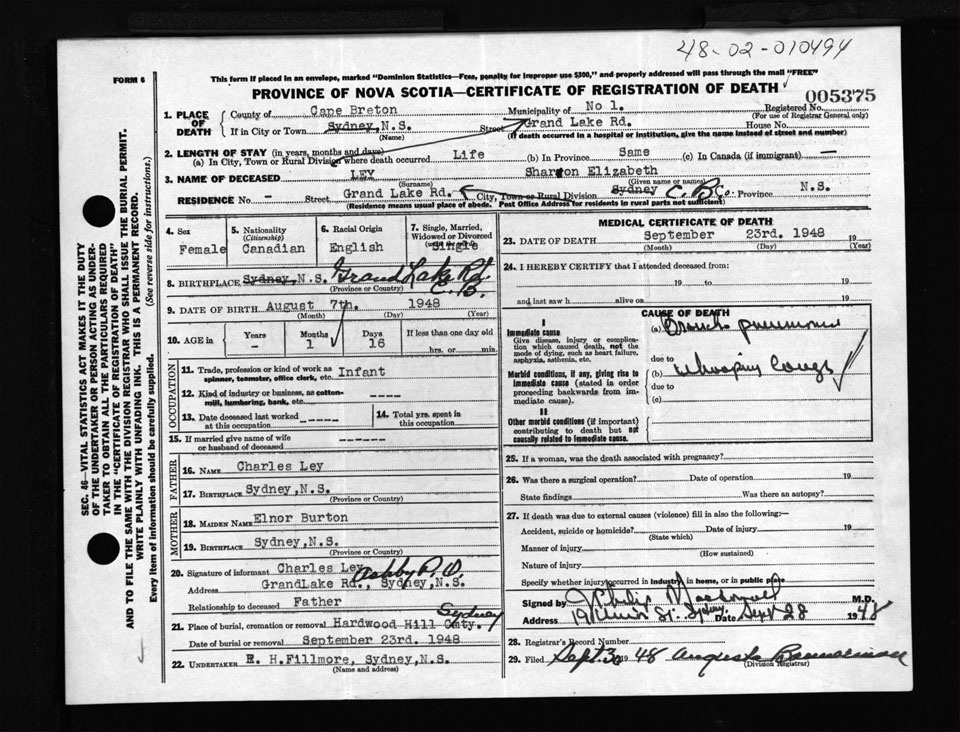 48-02-010494
FORM 6
This form if placed in an envelope, marked "Dominion Statistics—Free, penalty for improper use $300," and properly addressed will pass through the mail "FREE"
PROVINCE OF NOVA SCOTIA—CERTIFICATE OF REGISTRATION OF DEATH
005375
1. PLACE OF DEATH
County of Cape Breton Municipality of No 1. Registered No.
(For use of Registrar General only)
If in City or Town Sydney, N.S. Street Grand Lake Rd. House No.
(Name) (If death occurred in a hospital or institution, give the name instead of street and number)
2. LENGTH OF STAY (in years, months and days)
(a) In City, Town or Rural Division where death occurred Life (b) In Province Same (c) In Canada (if immigrant) —
3. NAME OF DECEASED LEY Sharon Elizabeth
(Surname) (Given name or names)
RESIDENCE No. - Street Grand Lake Rd. City, Town or Rural Division Sydney C. B. Co. Province N.S.
(Residence means usual place of abode. Post Office Address for residents in rural parts not sufficient)
4. Sex Female
5. Nationality (Citizenship) Canadian
6. Racial Origin English
7. Single, Married, Widowed or Divorced Single
8. BIRTHPLACE Sydney, N.S. Grand Lake Rd. C. B.
(Province or Country)
9. DATE OF BIRTH August 7th. 1948
(Month) (Day) (Year)
10. AGE in Years - Months 1 Days 16 If less than one day old
hrs. or min.
OCCUPATION
11. Trade, profession or kind of work as spinner, teamster, office clerk, etc. Infant
12. Kind of industry or business, as cotton-mill, lumbering, bank, etc. ----
13. Date deceased last worked at this occupation -----
14. Total yrs. spent in this occupation
15. If married give name of wife or husband of deceased ------
FATHER
16. NAME Charles Ley
17. BIRTHPLACE Sydney, N.S.
(Province or Country)
MOTHER
18. MAIDEN NAME Elnor Burton
19. BIRTHPLACE Sydney, N.S.
(Province or Country)
20. Signature of informant Charles Ley Ashby P.O.
Address GrandLake Rd., Sydney, N.S.
Relationship to deceased Father
21. Place of burial, cremation or removal Hardwood Hill Cmty. Sydney
Date of burial or removal September 23rd. 1948
22. UNDERTAKER E. H. Fillmore, Sydney, N.S.
(Name and address)
MEDICAL CERTIFICATE OF DEATH
23. DATE OF DEATH September 23rd. 1948
(Month) (Day) (Year)
24. I HEREBY CERTIFY that I attended deceased from:
19 to 19
and last saw h alive on 19
CAUSE OF DEATH
I
Immediate cause
Give disease, injury or complication which caused death, not the mode of dying, such as heart failure, asphyxia, asthenia, etc.
(a) Broncho pneumonia
due to
Morbid conditions, if any, giving rise to immediate cause (stated in order proceeding backwards from immediate cause).
(b) whooping cough
due to
(c)
II
Other morbid conditions (if important) contributing to death but not causally related to immediate cause.
25. If a woman, was the death associated with pregnancy?
26. Was there a surgical operation? Date of operation 19
State findings Was there an autopsy?
27. If death was due to external causes (violence) fill in also the following:—
Accident, suicide or homicide? Date of injury 19
(State which)
Manner of injury
(How sustained)
Nature of injury
Specify whether injury occurred in industry, in home, or in public place
Signed by Philip Macdonald M.D.
Address St. Sydney. Date Sept 28 1948
28. Registrar's Record Number
29. Filed Sept 30 1948 Augusta Bannerman
(Division Registrar)
SEC. 46—VITAL STATISTICS ACT MAKES IT THE DUTY
OF THE UNDERTAKER OR PERSON ACTING AS UNDER-
TAKER TO OBTAIN ALL THE PARTICULARS REQUIRED
IN THE "CERTIFICATE OF REGISTRATION OF DEATH"
AND TO FILE THE SAME WITH THE DIVISION REGISTRAR WHO SHALL ISSUE THE BURIAL PERMIT.
WRITE PLAINLY WITH UNFADING INK. THIS IS A PERMANENT RECORD.
Every item of information should be carefully supplied. (See reverse side for instructions.)